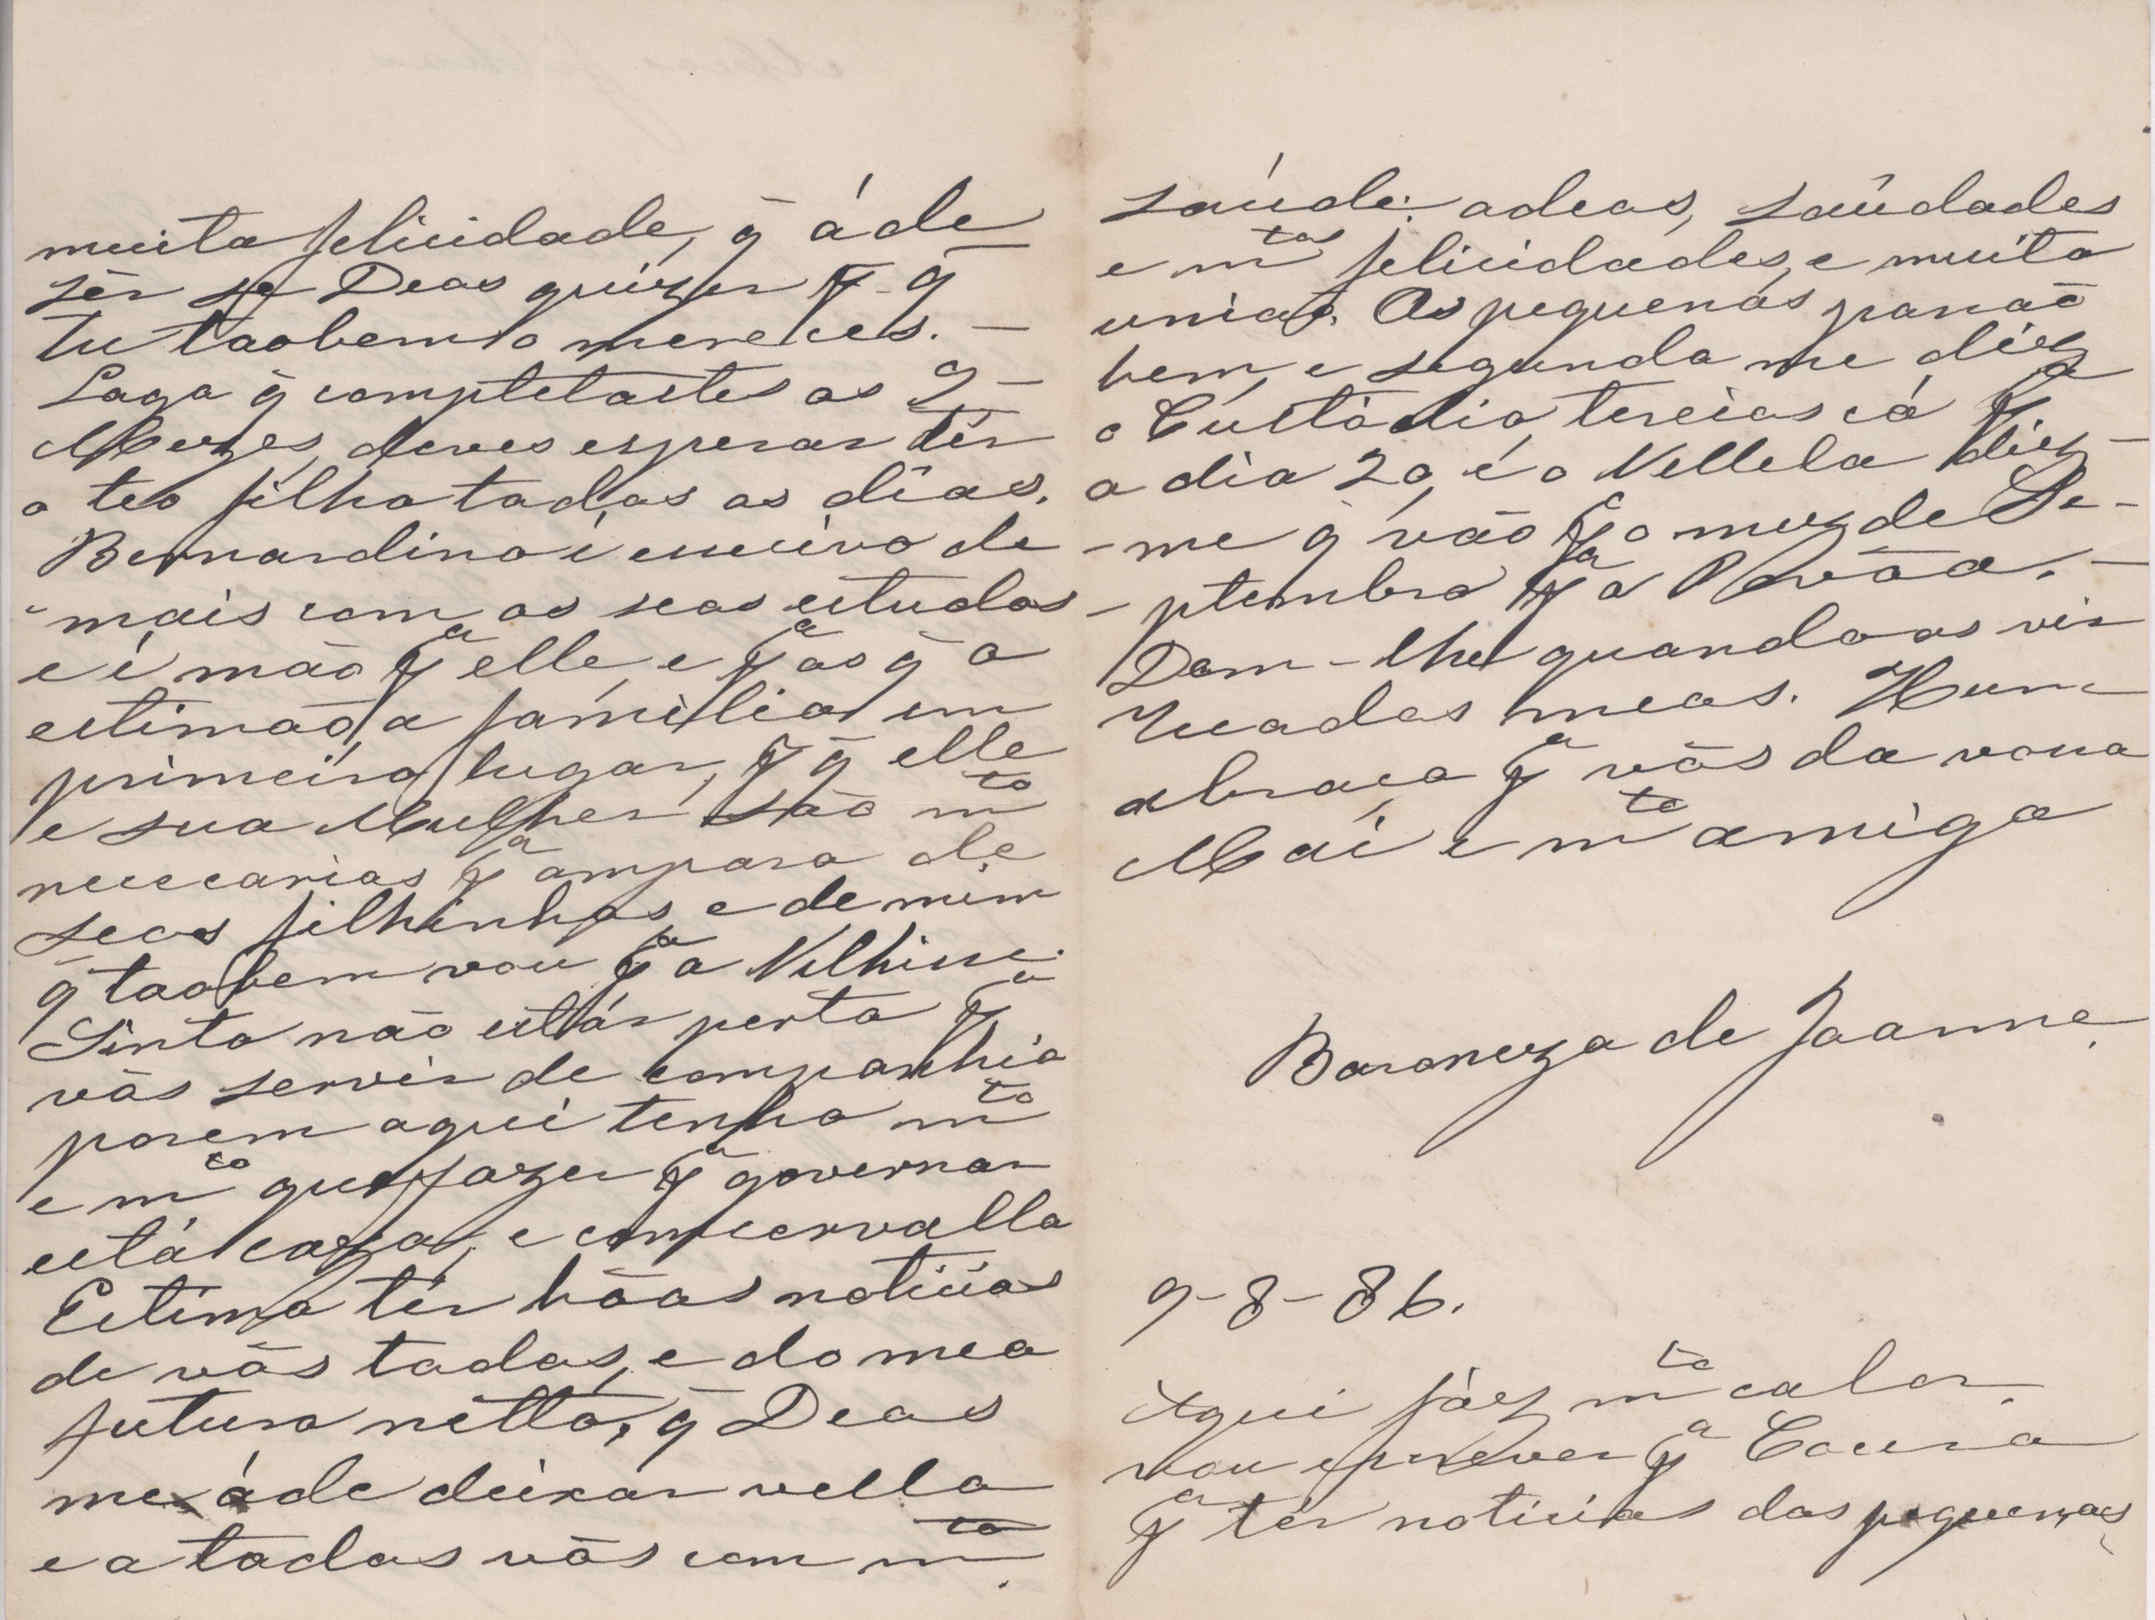 muita felicidade, q̃ áde
sêr se Deos quizer p q̃
tu taobem o mereces. –
Logo q̃ completastes os 9 –
Mezes, deves esperar têr
o teo filho todos os dias.
Bernardino é excecivo de
mais com os seos estudos
e é máo pª elle, e pª os q̃ o
estimão, a familia em
primeiro lugar, p q̃ elle
e sua Mulher são mto
nececarios pª amparo de
seos filhinhos, e de mim
q̃ taobem vou pª a Velhice.
Sinto não estár perto pª
vós servir de companhia
porem aqui tenho mto
e mto que fazer pª governar
está caza, e concervalla
Estimo têr bôas noticias
de vós todos, e do meo
futuro nétto, q̃ Deos
me áde deixar vello
e a todos vós com mta
saúde. adeos, saûdades
e mtas felicidades, e muita
união. Os pequenos passão
bem, e segundo me díz
o Custódio, tereios cá pª
o dia 20, é o Vellela diz –
– me q̃ vão pª o mez de Se –
– ptembro pª a Povôa. –
Dom – lhe quando os vir
recados meos. Hum
abraço pª vós da vossa
Mai e mto amiga
Baroneza de Joanne.
9 – 8 – 86.
Aqui fáz mto calor.
vou escrever pª Coura
pª têr noticias dos pequenos